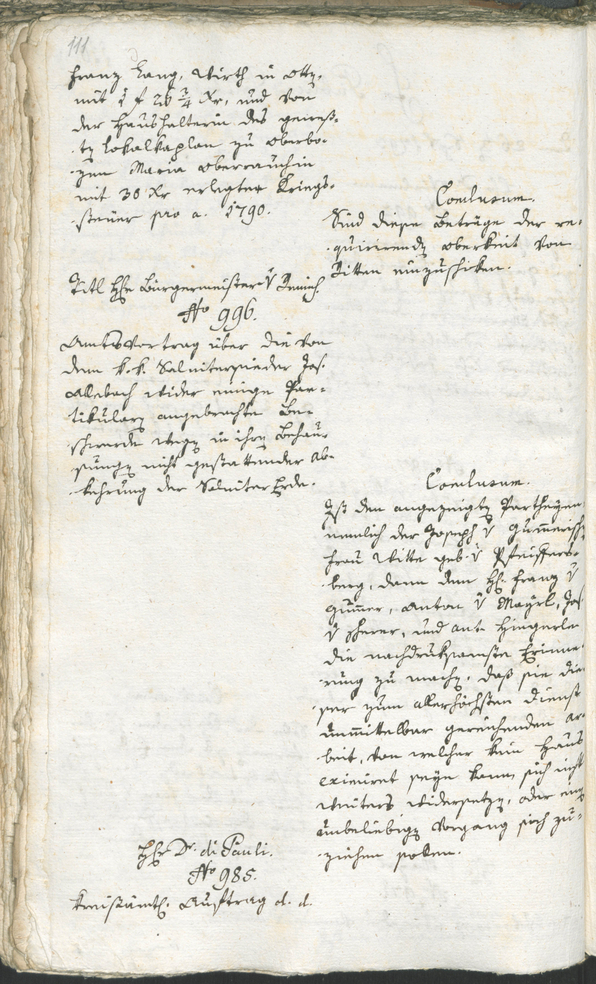 111
Franz Lang, Wirth in Otz,
mit 1 f 26 3/4 Xr, und von
der Haushalterin des gewes-
ten Lokalkaplan zu Oberbo-
zen Maria Oberrauchin
mit 30 Xr erlegter Kriegs-
steuer pro a. 1790.
Conclusum.
Sind diese Beträge der re-
quirirendn Oberkeit von
Ritten einzuschiken.
Titl Hr Bürgermeister v
No 996.
Amtsvortrag über die von
dem k. k. Salitersieder Jos.
Allebach wider einige Par-
tikularn angebrachte Be-
schwerde wegn in ihrn Behau-
sungn nicht gestattender Ab-
kehrung der Saliter Erde.
Conclusum.
Ist den angezeigtn Partheyen
nemlich der Joseph v Gumerisch
Frau Witte geb. v Pfeiffers-
berg, dann dem Hr. Franz v
Gumer, Anton v Mayrl, Jos.
v , und Ant. Hingerle
die nachdruksamste Erinne-
rung zu machn, daß sie die-
ser zum allerhöchsten Dienst
unmittelbar gereichenden Ar-
beit, von welcher kein Haus
eximiret seyn kann, sich nicht
weiters widersetzn, oder ein
unbeliebign Vorgang sich zu-
ziehen sollen.
Hr Dr. di Pauli.
No 985.
Kreisämtl. Auftrag d. d.